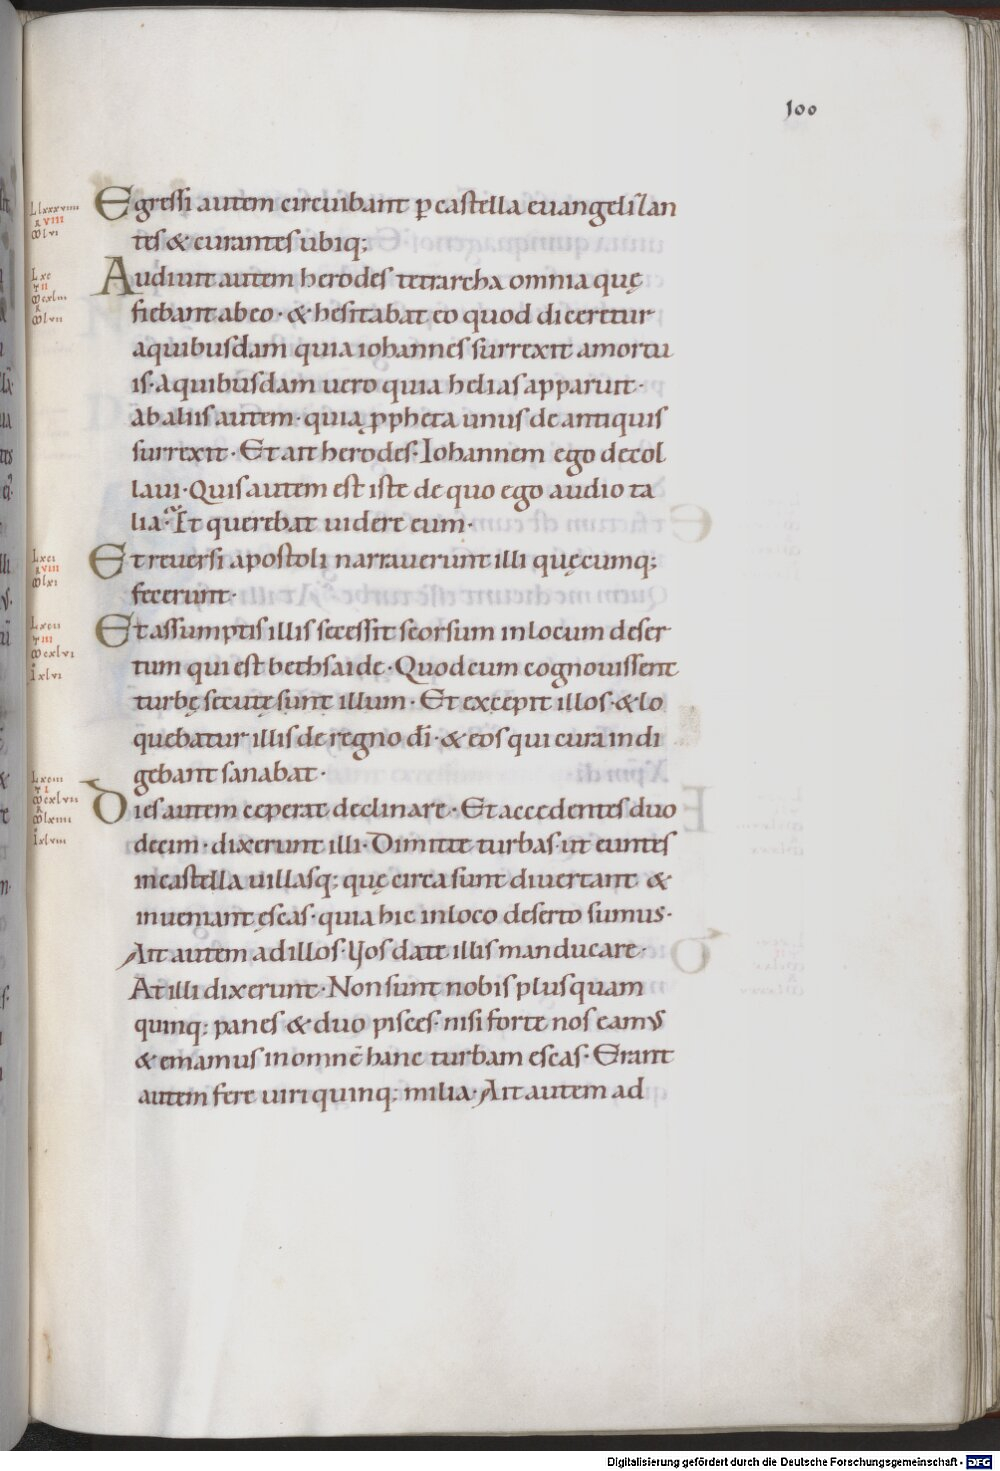 100
Egressi autem circuibant p castella euangelizan
tes & curantes ubiq;
Audiuit autem herodes tetrarcha omnia quę
fiebant ab eo · & hesitabat eo quod diceretur
a quibusdam quia iohannes surrexit a mortu
is · a quibusdam uero quia helias apparuit ·
ab aliis autem · quia ppheta unus de antiquis
surrexit · Et ait herodes · Iohannem ego decol
laui · Quis autem est iste de quo ego audio ta
lia · Et querebat uidere eum ·
Et reuersi apostoli narrauerunt illi quęcumq;
fecerunt ·
Et assumptis illis secessit seorsum in locum deser
tum qui est bethsaide · Quod cum cognouissent
turbę secutę sunt illum · Et excepit illos · & lo
quebatur illis de regno dī · & eos qui cura indi
gebant sanabat ·
Dies autem ceperat declinare · Et accedentes duo
decim · dixerunt illi · Dimitte turbas · ut euntes
in castella uillasq; quę circa sunt diuertant &
inueniant escas · quia hic in loco deserto sumus ·
Ait autem ad illos · Uos date illis manducare ·
At illi dixerunt · Non sunt nobis plus quam
quinq; panes & duo pisces · nisi forte nos eamus
& emamus in omnē hanc turbam escas · Erant
autem fere uiri quinq; milia · Ait autem ad
Digitalisierung gefördert durch die Deutsche Forschungsgemeinschaft - DFG